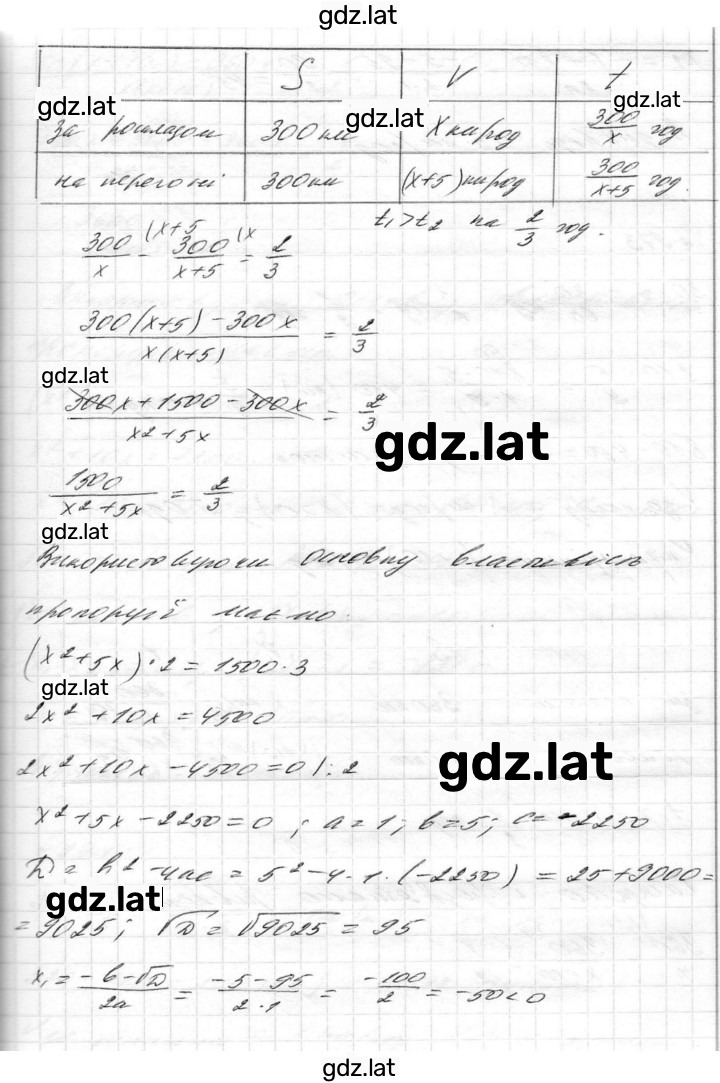 gdz.lat
S V t
gdz.lat gdz.lat gdz.lat
За розкладом 300 км x км/год 300/x год
на перегоні 300 км (x+5) км/год 300/(x+5) год.
t₁>t₂ на 2/3 год.
300/x (x+5 - 300/(x+5) (x = 2/3
(300(x+5) - 300x)/(x(x+5)) = 2/3
gdz.lat
(300x + 1500 - 300x)/(x2+5x) = 2/3
gdz.lat
1500/(x2+5x) = 2/3
gdz.lat
Використовуючи основну властивість
пропорції маємо.
(x2+5x)·2 = 1500·3
gdz.lat
2x2 + 10x = 4500
2x2 + 10x - 4500 = 0 |:2
gdz.lat
x2 + 5x - 2250 = 0 ; a=1; b=5; c=-2250
D = b2 - 4ac = 52 - 4·1·(-2250) = 25 + 9000 =
gdz.lat
= 9025; √D = √9025 = 95
x₁ = (-b-√D)/2a = (-5-95)/(2·1) = -100/2 = -50<0
gdz.lat